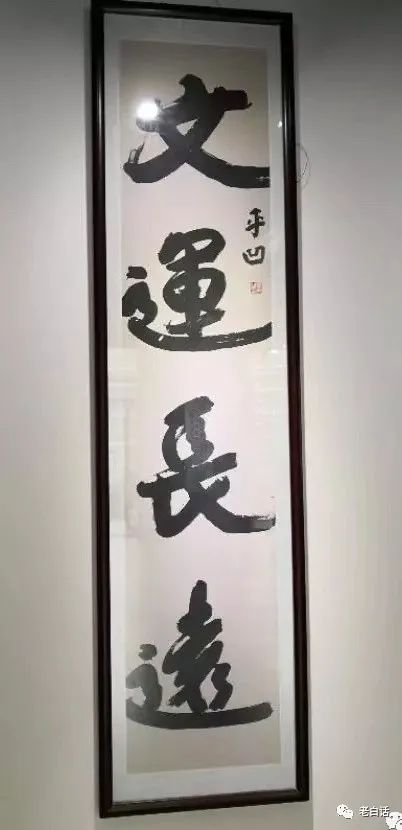 文運長遠
平凹
老白话